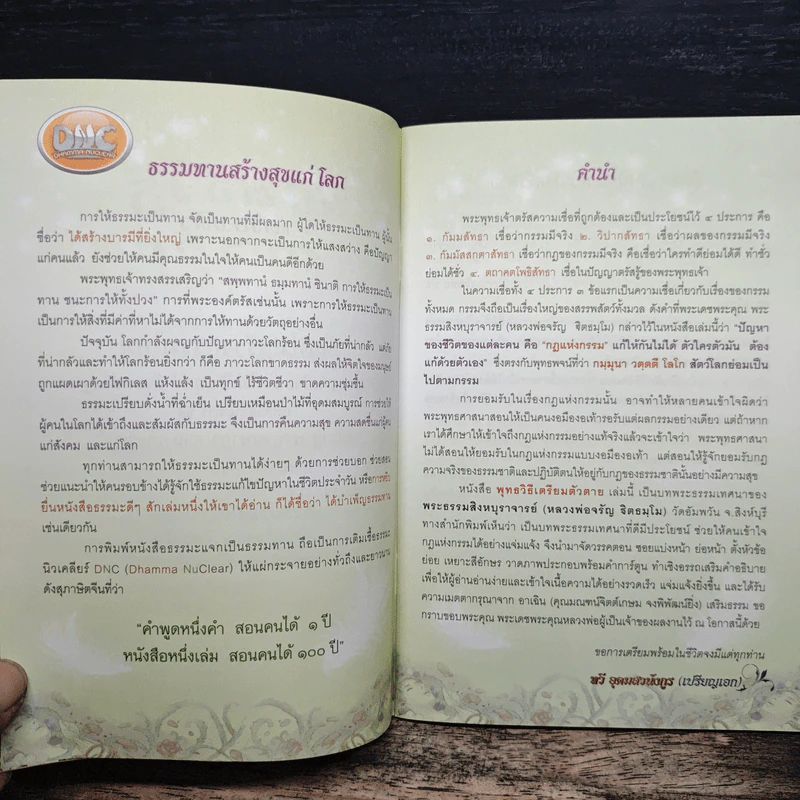 DNC
DHAMMA NUCLEAR
ธรรมทานสร้างสุขแก่ โลก
การให้ธรรมะเป็นทาน จัดเป็นทานที่มีผลมาก ผู้ใดให้ธรรมะเป็นทาน ผู้นั้น
ชื่อว่า ได้สร้างบารมีที่ยิ่งใหญ่ เพราะนอกจากจะเป็นการให้แสงสว่าง คือปัญญา
แก่คนแล้ว ยังช่วยให้คนมีคุณธรรมในใจให้คนเป็นคนดีอีกด้วย
พระพุทธเจ้าทรงสรรเสริญว่า "สพฺพทานํ ธมฺมทานํ ชินาติ การให้ธรรมะเป็น
ทาน ชนะการให้ทั้งปวง" การที่พระองค์ตรัสเช่นนั้น เพราะการให้ธรรมะ
เป็นการให้สิ่งที่มีค่าที่หาไม่ได้จากการให้ทานด้วยวัตถุอย่างอื่น
ปัจจุบัน โลกกำลังผจญกับปัญหาภาวะโลกร้อน ซึ่งเป็นภัยที่น่ากลัว แต่ภัย
ที่น่ากลัวและทำให้โลกร้อนยิ่งกว่า ก็คือ ภาวะโลกขาดธรรม ส่งผลให้จิตใจของมนุษย์
ถูกแผดเผาด้วยไฟกิเลส แห้งแล้ง เป็นทุกข์ ไร้ชีวิตชีวา ขาดความชุ่มชื้น
ธรรมะเปรียบดั่งน้ำที่ฉ่ำเย็น เปรียบเหมือนป่าไม้ที่อุดมสมบูรณ์ การช่วยให้
ผู้คนในโลกได้เข้าถึงและสัมผัสกับธรรมะ จึงเป็นการคืนความสุข ความสดชื่นแก่ผู้คน
แก่สังคม และแก่โลก
ทุกท่านสามารถให้ธรรมะเป็นทานได้ง่ายๆ ด้วยการช่วยบอก ช่วยสอน
ช่วยแนะนำให้คนรอบข้างได้รู้จักใช้ธรรมะแก้ไขปัญหาในชีวิตประจำวัน หรือการหยิบ
ยื่นหนังสือธรรมะดีๆ สักเล่มหนึ่งให้เขาได้อ่าน ก็ได้ชื่อว่า ได้บำเพ็ญธรรมทาน
เช่นเดียวกัน
การพิมพ์หนังสือธรรมะแจกเป็นธรรมทาน ถือเป็นการเติมเชื้อธรรมะ
นิวเคลียร์ DNC (Dhamma NuClear) ให้แผ่กระจายอย่างทั่วถึงและยาวนาน
ดังสุภาษิตจีนที่ว่า
"คำพูดหนึ่งคำ สอนคนได้ ๑ ปี
หนังสือหนึ่งเล่ม สอนคนได้ ๑๐๐ ปี"
คำนำ
พระพุทธเจ้าตรัสความเชื่อที่ถูกต้องและเป็นประโยชน์ไว้ ๔ ประการ คือ
๑. กัมมสัทธา เชื่อว่ากรรมมีจริง ๒. วิปากสัทธา เชื่อว่าผลของกรรมมีจริง
๓. กัมมัสสกตาสัทธา เชื่อว่ากฎแห่งกรรมมีจริง คือเชื่อว่าใครทำดีย่อมได้ดี ทำชั่ว
ย่อมได้ชั่ว ๔. ตถาคตโพธิสัทธา เชื่อในปัญญาตรัสรู้ของพระพุทธเจ้า
ในความเชื่อทั้ง ๔ ประการ ๓ ข้อแรกเป็นความเชื่อเกี่ยวกับเรื่องของกรรม
ทั้งหมด กรรมจึงถือเป็นเรื่องใหญ่ของสรรพสัตว์ทั้งมวล ดังคำที่พระเดชพระคุณ พระ
ธรรมสิงหบุราจารย์ (หลวงพ่อจรัญ ฐิตธมฺโม) กล่าวไว้ในหนังสือเล่มนี้ว่า "ปัญหา
ของชีวิตของแต่ละคน คือ "กฎแห่งกรรม" แก้ให้กันไม่ได้ ตัวใครตัวมัน ต้อง
แก้ด้วยตัวเอง" ซึ่งตรงกับพุทธพจน์ที่ว่า กมฺมุนา วตฺตตี โลโก สัตว์โลกย่อมเป็น
ไปตามกรรม
การยอมรับในเรื่องกฎแห่งกรรมนั้น อาจทำให้หลายคนเข้าใจผิดว่า
พระพุทธศาสนาสอนให้เป็นคนงอมืองอเท้ารอรับแต่ผลกรรมอย่างเดียว แต่ถ้าหาก
เราได้ศึกษาให้เข้าใจถึงกฎแห่งกรรมอย่างแท้จริงแล้วจะเข้าใจว่า พระพุทธศาสนา
ไม่ได้สอนให้ยอมรับในกฎแห่งกรรมแบบงอมืองอเท้า แต่สอนให้รู้จักยอมรับกฎ
ความจริงของธรรมชาติและปฏิบัติตนให้อยู่กับกฎของธรรมชาตินั้นอย่างมีความสุข
หนังสือ พุทธวิธีเตรียมตัวตาย เล่มนี้ เป็นบทพระธรรมเทศนาของ
พระธรรมสิงหบุราจารย์ (หลวงพ่อจรัญ ฐิตธมฺโม) วัดอัมพวัน จ.สิงห์บุรี
ทางสำนักพิมพ์เห็นว่า เป็นบทพระธรรมเทศนาที่ดีมีประโยชน์ ช่วยให้คนเข้าใจ
กฎแห่งกรรมได้อย่างแจ่มแจ้ง จึงนำมาจัดวรรคตอน ซอยแบ่งหน้า ย่อหน้า ตั้งหัวข้อ
ย่อย เหยาะสีอักษร วาดภาพประกอบพร้อมคำการ์ตูน ทำเชิงอรรถเสริมคำอธิบาย
เพื่อให้ผู้อ่านอ่านง่ายและเข้าใจเนื้อความได้อย่างรวดเร็ว แจ่มแจ้งยิ่งขึ้น และได้รับ
ความเมตตากรุณาจาก อาเฉิน (คุณมณฑน์จิตต์เกษม จงพิพัฒน์ยิ่ง) เสริมธรรม ขอ
กราบขอบพระคุณ พระเดชพระคุณหลวงพ่อผู้เป็นเจ้าของผลงานไว้ ณ โอกาสนี้ด้วย
ขอการเตรียมพร้อมในชีวิตจงมีแด่ทุกท่าน
ทวี อุดมสวนังกูร (เปรียญเอก)